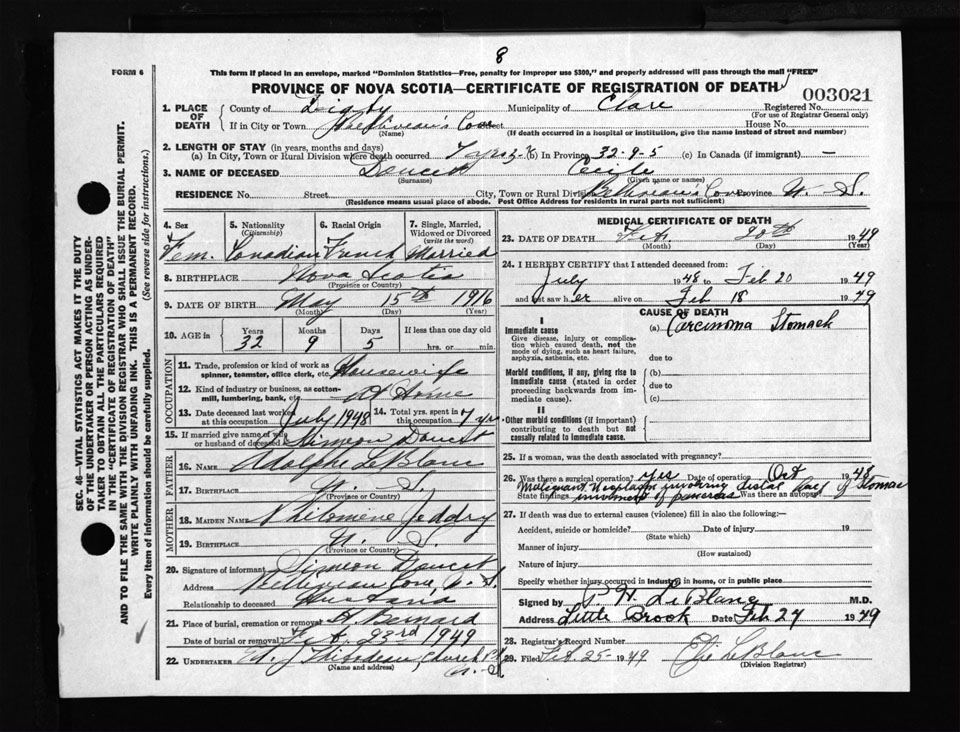 8
FORM 6
This form if placed in an envelope, marked "Dominion Statistics—Free, penalty for improper use $300," and properly addressed will pass through the mail "FREE"
PROVINCE OF NOVA SCOTIA—CERTIFICATE OF REGISTRATION OF DEATH
003021
1. PLACE OF DEATH County of Digby Municipality of Clare Registered No.
(For use of Registrar General only)
If in City or Town Cove Street House No.
(Name) (If death occurred in a hospital or institution, give the name instead of street and number)
2. LENGTH OF STAY (in years, months and days)
(a) In City, Town or Rural Division where death occurred 7 yrs (b) In Province 32-9-5 (c) In Canada (if immigrant) —
3. NAME OF DECEASED Doucet Cecile
(Surname) (Given name or names)
RESIDENCE No. Street City, Town or Rural Division Cove Province N. S.
(Residence means usual place of abode. Post Office Address for residents in rural parts not sufficient)
4. Sex Fem.
5. Nationality (Citizenship) Canadian
6. Racial Origin French
7. Single, Married, Widowed or Divorced (write the word) Married
8. BIRTHPLACE Nova Scotia
(Province or Country)
9. DATE OF BIRTH May 15th 1916
(Month) (Day) (Year)
10. AGE in Years Months Days If less than one day old
32 9 5 hrs. or min.
OCCUPATION
11. Trade, profession or kind of work as spinner, teamster, office clerk, etc. Housewife
12. Kind of industry or business, as cotton-mill, lumbering, bank, etc. At Home
13. Date deceased last worked at this occupation July 1948 14. Total yrs. spent in this occupation 7 yrs.
15. If married give name of wife or husband of deceased Simeon Doucet
FATHER
16. NAME Adolphe LeBlanc
17. BIRTHPLACE N. S.
(Province or Country)
MOTHER
18. MAIDEN NAME Philomene Jeddry
19. BIRTHPLACE N. S.
(Province or Country)
20. Signature of informant Simeon Doucet
Address Cove, N. S.
Relationship to deceased Husband
21. Place of burial, cremation or removal St Bernard
Date of burial or removal Feb. 23rd 1949
22. UNDERTAKER Thibodeau, Church Pt
(Name and address) N. S.
MEDICAL CERTIFICATE OF DEATH
23. DATE OF DEATH Feb. 20th 1949
(Month) (Day) (Year)
24. I HEREBY CERTIFY that I attended deceased from:
July 1948 to Feb 20 1949
and last saw her alive on Feb 18 1949
CAUSE OF DEATH
I
Immediate cause (a) Carcinoma Stomach
Give disease, injury or complication which caused death, not the mode of dying, such as heart failure, asphyxia, asthenia, etc. due to
Morbid conditions, if any, giving rise to immediate cause (stated in order proceeding backwards from immediate cause). (b)
due to
(c)
II
Other morbid conditions (if important) contributing to death but not causally related to immediate cause.
25. If a woman, was the death associated with pregnancy?
26. Was there a surgical operation? Yes Date of operation Oct 1948
Malignant Neoplasm involving distal half of Stomach
State findings involvement of pancreas Was there an autopsy?
27. If death was due to external causes (violence) fill in also the following:—
Accident, suicide or homicide? Date of injury 19
(State which)
Manner of injury
(How sustained)
Nature of injury
Specify whether injury occurred in industry, in home, or in public place
Signed by P. H. LeBlanc M.D.
Address Little Brook Date Feb 27 1949
28. Registrar's Record Number
29. Filed Feb. 25 - 1949 LeBlanc
(Division Registrar)
SEC. 46—VITAL STATISTICS ACT MAKES IT THE DUTY
OF THE UNDERTAKER OR PERSON ACTING AS UNDER-
TAKER TO OBTAIN ALL THE PARTICULARS REQUIRED
IN THE "CERTIFICATE OF REGISTRATION OF DEATH"
AND TO FILE THE SAME WITH THE DIVISION REGISTRAR WHO SHALL ISSUE THE BURIAL PERMIT.
WRITE PLAINLY WITH UNFADING INK. THIS IS A PERMANENT RECORD.
Every item of information should be carefully supplied. (See reverse side for instructions.)